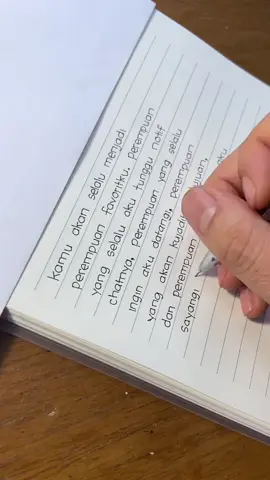 kamu akan selalu menjadi
perempuan favoritku, perempuan
yang selalu aku tunggu notif
chatnya, perempuan yang selalu
ingin aku datangi, perempuan
yang akan kujadi
dan perempuan aku
sayangi